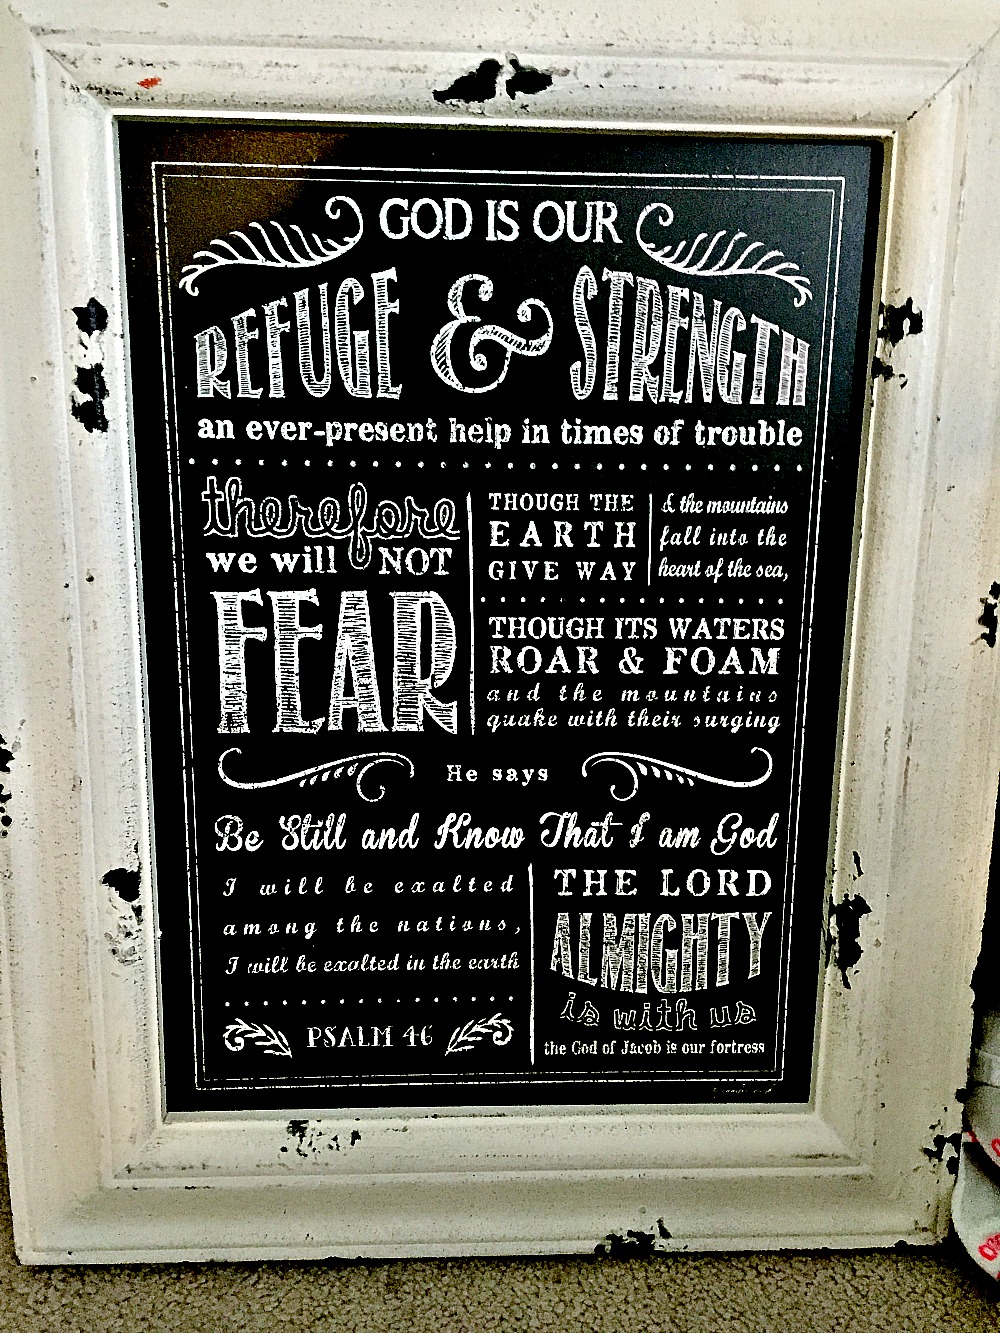 GOD IS OUR
REFUGE & STRENGTH
an ever-present help in times of trouble
therefore
we will NOT
FEAR
THOUGH THE
EARTH
GIVE WAY
& the mountains
fall into the
heart of the sea,
THOUGH ITS WATERS
ROAR & FOAM
and the mountains
quake with their surging
He says
Be Still and Know That I am God
I will be exalted
among the nations,
I will be exalted in the earth
PSALM 46
THE LORD
ALMIGHTY
is with us
the God of Jacob is our fortress